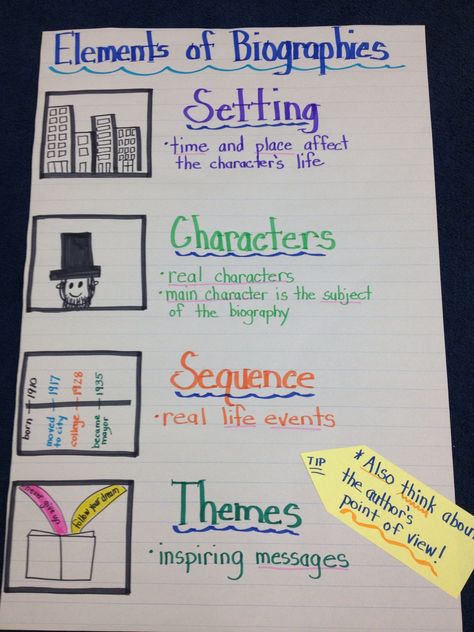 Elements of Biographies
Setting
• time and place affect
the character's life
Characters
• real characters
• main character is the subject
of the biography
born 1910
moved to city 1917
college 1928
became mayor 1935
Sequence
• real life events
never give up
follow your dream
Themes
• inspiring messages
TIP
* Also think about
the author's
point of view!